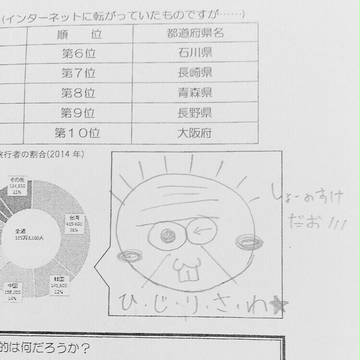 (インターネットに転がっていたものですが……)
順　位　都道府県名
第6位　石川県
第7位　長崎県
第8位　青森県
第9位　長野県
第10位　大阪府
旅行者の割合(2014 年)
その他
台湾
全道
韓国
中国
しょーのすけ
だお!!!
ひ・じ・り・さ・わ★
的は何だろうか？